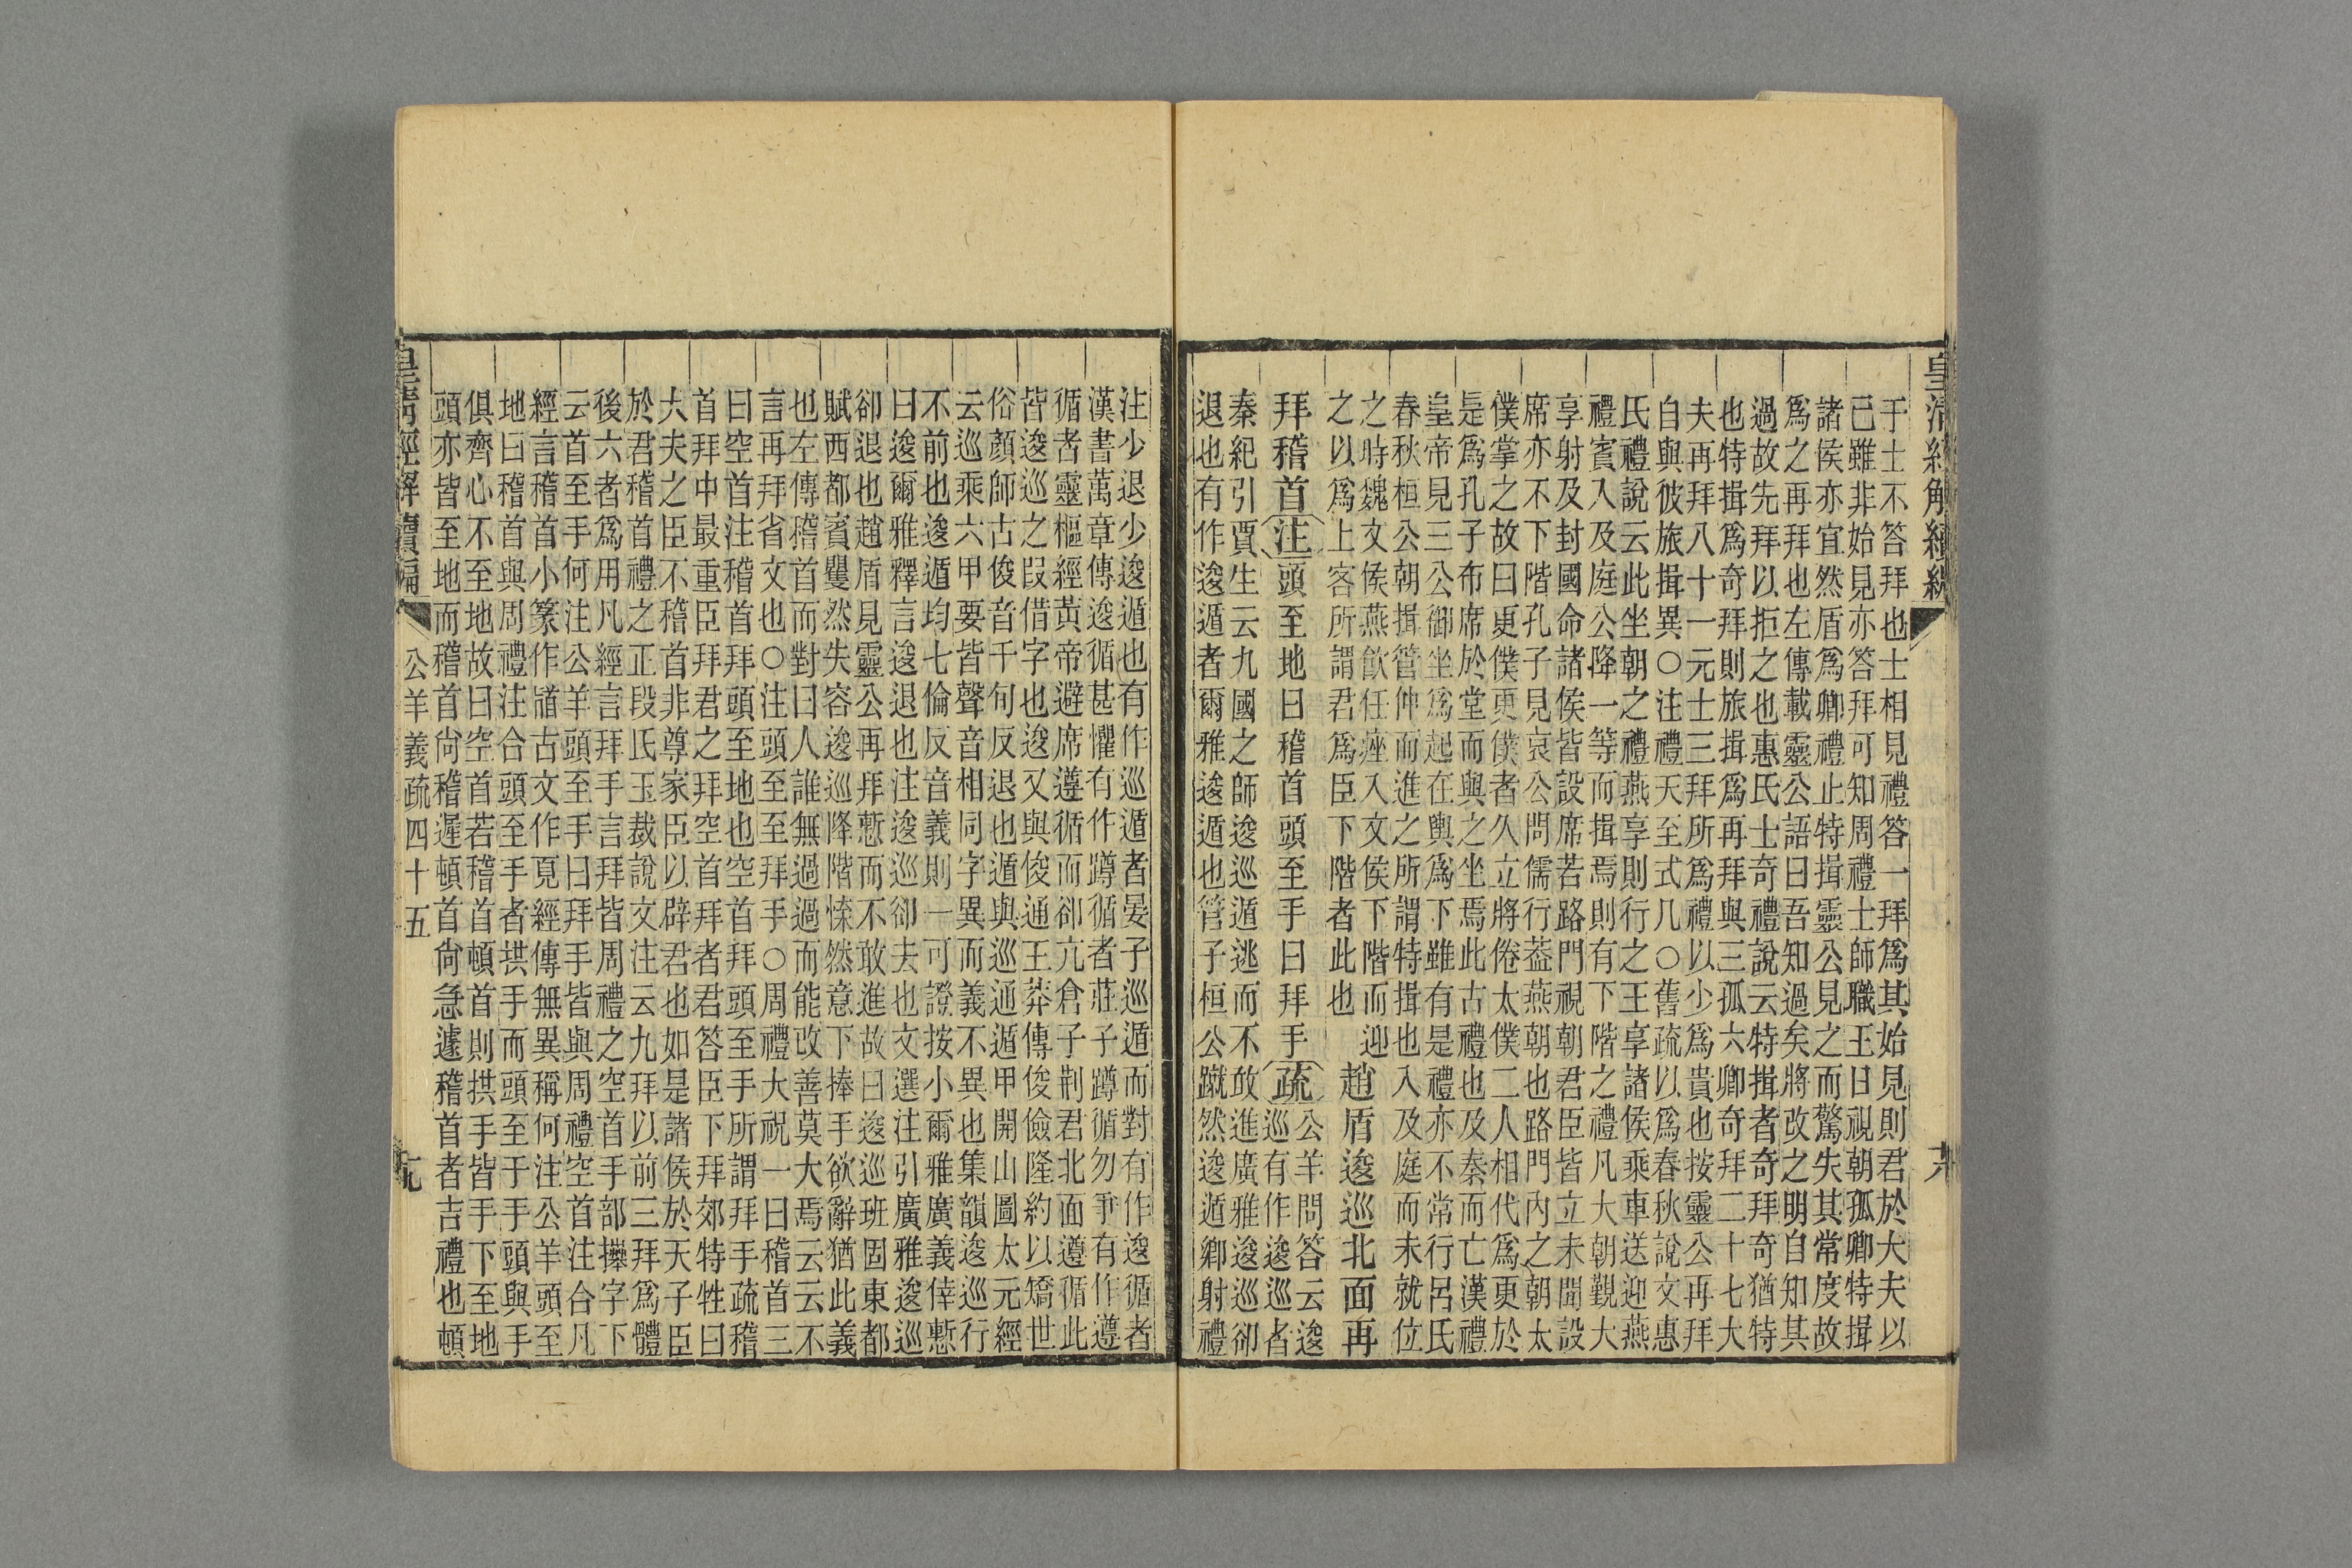 皇清經解續編
于士不答拜也士相見禮答一拜爲其始見則君於大夫以
已雖非始見亦答拜可知周禮士師職王日視朝孤卿特揖
諸侯亦宜然盾爲卿禮止特揖靈公見之而驚失其常度故
爲之再拜也左傳載靈公語曰吾知過矣將改之明自知其
過故先拜以拒之也惠氏士奇禮說云特揖者奇拜奇猶特
也特揖爲奇拜則旅揖爲再拜與三孤六卿奇拜二十七大
夫再拜八十一元士三拜所爲禮以少爲貴也按靈公再拜
自與彼旅揖異○注禮天至式几○舊疏以爲春秋說文惠
氏禮說云此坐朝之禮燕享則行之王享諸侯乘車送迎燕
禮賓入及庭公降一等而揖焉則有下階之禮凡大朝覲大
享射及封國命諸侯皆設席若路門視朝君臣皆立未聞設
席亦不下階孔子見哀公問儒行葢燕朝也路門內之朝太
僕掌之故曰更僕更僕者久立將倦太僕二人相代爲更於
是爲孔子布席於堂而與之坐焉此古禮也及秦而亡漢禮
皇帝見三公御坐爲起在輿爲下雖有是禮亦不常行呂氏
春秋桓公朝揖管仲而進之所謂特揖也入及庭而未就位
之時魏文侯燕飲任痤入文侯下階而迎
之以爲上客所謂君爲臣下階者此也
趙盾逡巡北面再
拜稽首注頭至地曰稽首頭至手曰拜手疏公羊問答云逡
巡有作逡巡者
秦紀引賈生云九國之師逡巡遁逃而不敢進廣雅逡巡卻
退也有作逡遁者爾雅逡遁也管子桓公蹴然逡遁鄉射禮
六
注少退少逡遁也有作巡遁者晏子巡遁而對有作逡循者
漢書萬章傳逡循甚懼有作蹲循者莊子蹲循勿爭有作遵
循者靈樞經黃帝避席遵循而卻亢倉子荊君北面遵循此
皆逡巡之叚借字也逡又與俊通王莽傳俊儉隆約以矯世
俗顏師古俊音千旬反退也遁與巡通遁甲開山圖太元經
云巡乘六甲要皆聲音相同字異而義不異也集韻逡巡行
不前也逡遁均七倫反音義則一可證按小爾雅廣義倖慙
日逡爾雅釋言逡退也注逡巡卻去也文選注引廣雅逡巡
卻退也趙盾見靈公再拜慙而不敢進故曰逡巡班固東都
賦西都賓矍然失容逡巡降階悚然意下捧手欲辭猶此義
也左傳稽首而對曰人誰無過過而能改善莫大焉云云不
言再拜省文也○注頭至至拜手○周禮大祝一曰稽首三
曰空首注稽首拜頭至地也空首拜頭至手所謂拜手疏稽
首拜中最重臣拜君之拜空首拜者君答臣下拜郊特牲曰
大夫之臣不稽首非尊家臣以辟君也如是諸侯於天子臣
於君稽首禮之正段氏玉裁說文注云九拜以前三拜爲體
後六者爲用凡經言拜手言拜皆周禮之空首手部𢷎字下
云首至手何注公羊頭至手曰拜手皆與周禮空首注合凡
經言稽首小篆作𩒨古文作𥄷經傳無異稱何注公羊頭至
地曰稽首與周禮注合頭至手者拱手而頭至于手頭與手
俱齊心不至地故曰空首若稽首頓首則拱手皆手下至地
頭亦皆至地而稽首尙稽遲頓首尙急遽稽首者吉禮也頓
皇清經解續編
公羊義疏四十五
九